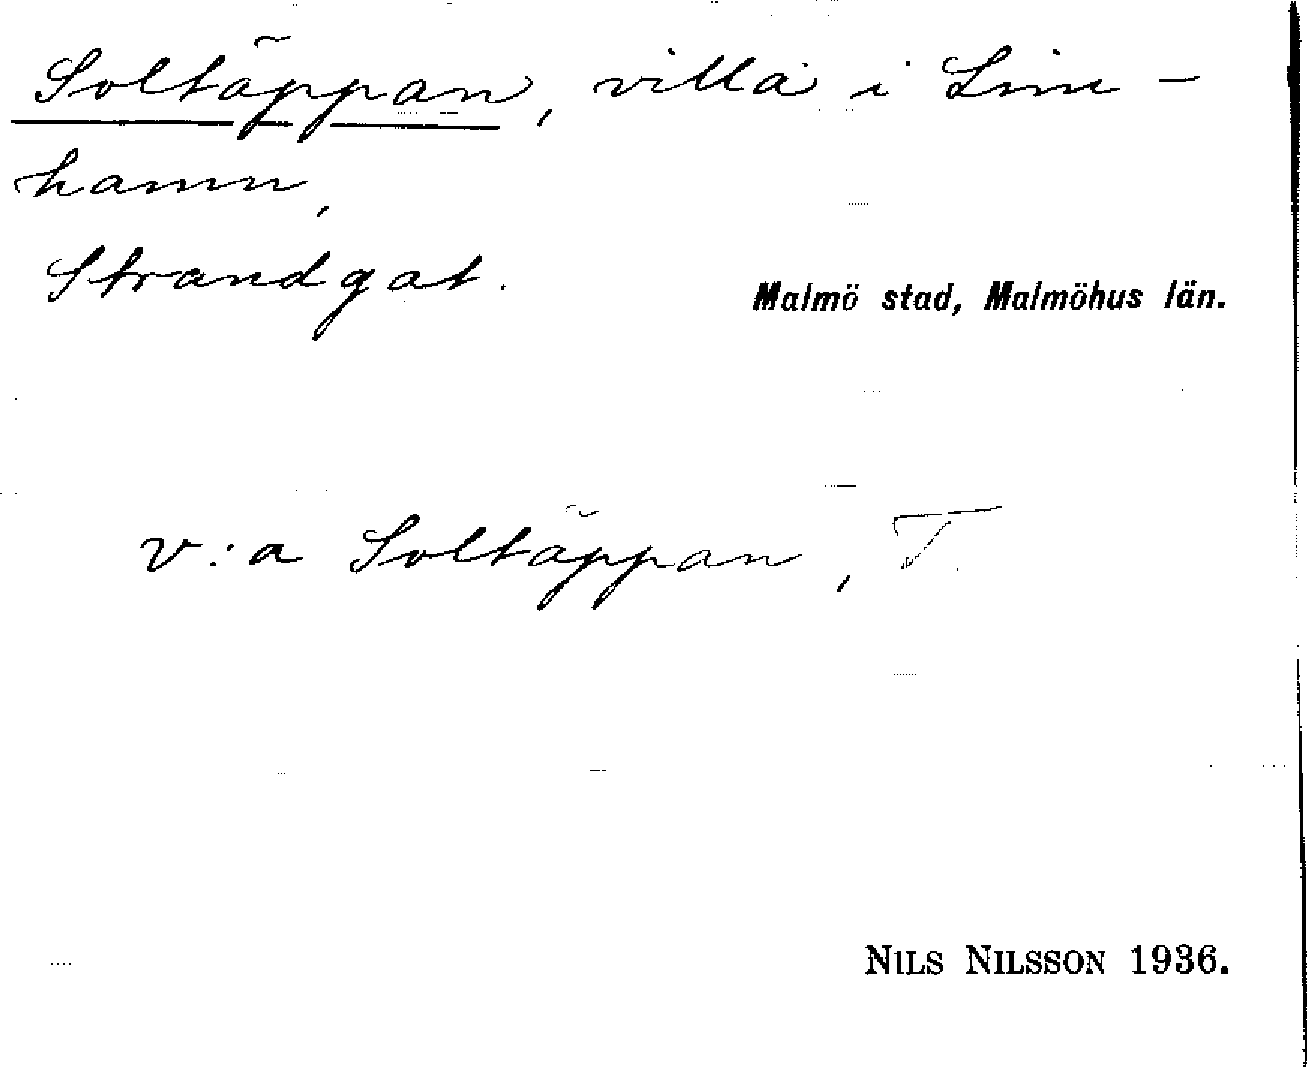 Soltäppan, villa i Lim-
hamn,
Strandgat.
Malmö stad, Malmöhus län.
v:a Soltäppan, T.
NILS NILSSON 1936.